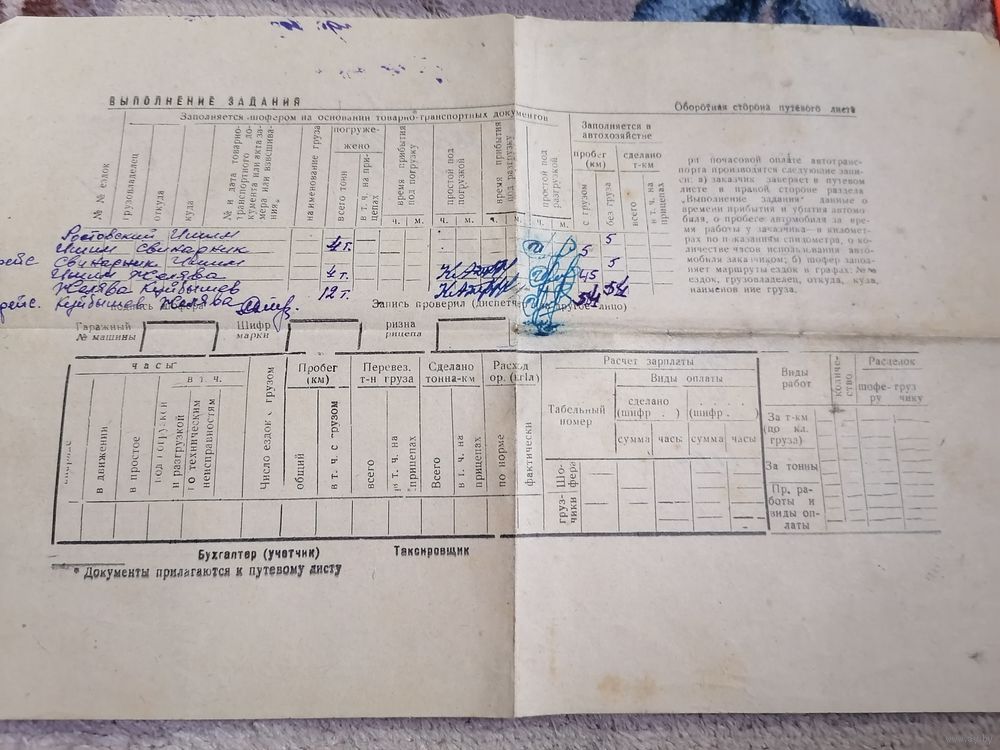 ВЫПОЛНЕНИЕ ЗАДАНИЯ
Оборотная сторона путевого листа
Заполняется шофером на основании товарно-транспортных документов
Заполняется в автохозяйстве
№ № ездок
грузовладелец
откуда
куда
№ и дата товарно-
транспортного до-
кумента или акта за-
мера или взвешива-
ния*
наименование груза
погруже-
жено
всего тонн
в т. ч. на при-
цепах
время прибытия
под погрузку
простой под
погрузкой
время прибытия
под разгрузку
простой под
разгрузкой
ч. м. ч. м. ч. м. ч. м.
пробег
(км)
с грузом
без груза
сделано
т-км
всего
в т. ч. на
прицепах
ри почасовой оплате автотранс-
порта производятся следующие запи-
си: а) заказчик заверяет в путевом
листе в правой стороне раздела
„Выполнение задания" данные о
времени прибытия и убытия автомо-
биля, о пробеге автомобиля за вре-
мя работы у заказчика в километ-
рах по показаниям спидометра, о ко-
личестве часов использования авто-
мобиля заказчиком; б) шофер запол-
няет маршруты ездок в графах: №№
ездок, грузовладелец, откуда, куда,
наименование груза.
Ростовский Ишим 5
Ишим Свинарник 4 т. 5
рейс Свинарник Ишим 5
Ишим Желява 4 т. 45
Желява Куйбышев 12 т. 54
рейс. Куйбышев Желява 54
подпись шофера
Запись проверил (диспетчер или другое лицо)
Гаражный
№ машины
Шифр
марки
ризна
рицепа
часы
в т. ч.
в движении
в простое
под погрузкой
и разгрузкой
по техническим
неисправностям
Число ездок с грузом
Пробег
(км)
общий
в т. ч. с грузом
Перевез.
т-н груза
всего
в т. ч. на
прицепах
Сделано
тонна-км
Всего
в т. ч. на
прицепах
Расход
ор. (кг/л)
по норме
фактически
Расчет зарплаты
Табельный
номер
Виды оплаты
сделано
(шифр . )
(шифр . )
сумма часы сумма часы
Шо-
фера
груз-
чики
Виды
работ
количе-
ство
Расценок
шофе-
ру
груз
чику
За т-км
(по кл.
груза)
За тонны
Пр. ра-
боты и
виды оп-
латы
Бухгалтер (учетчик) Таксировщик
* Документы прилагаются к путевому листу